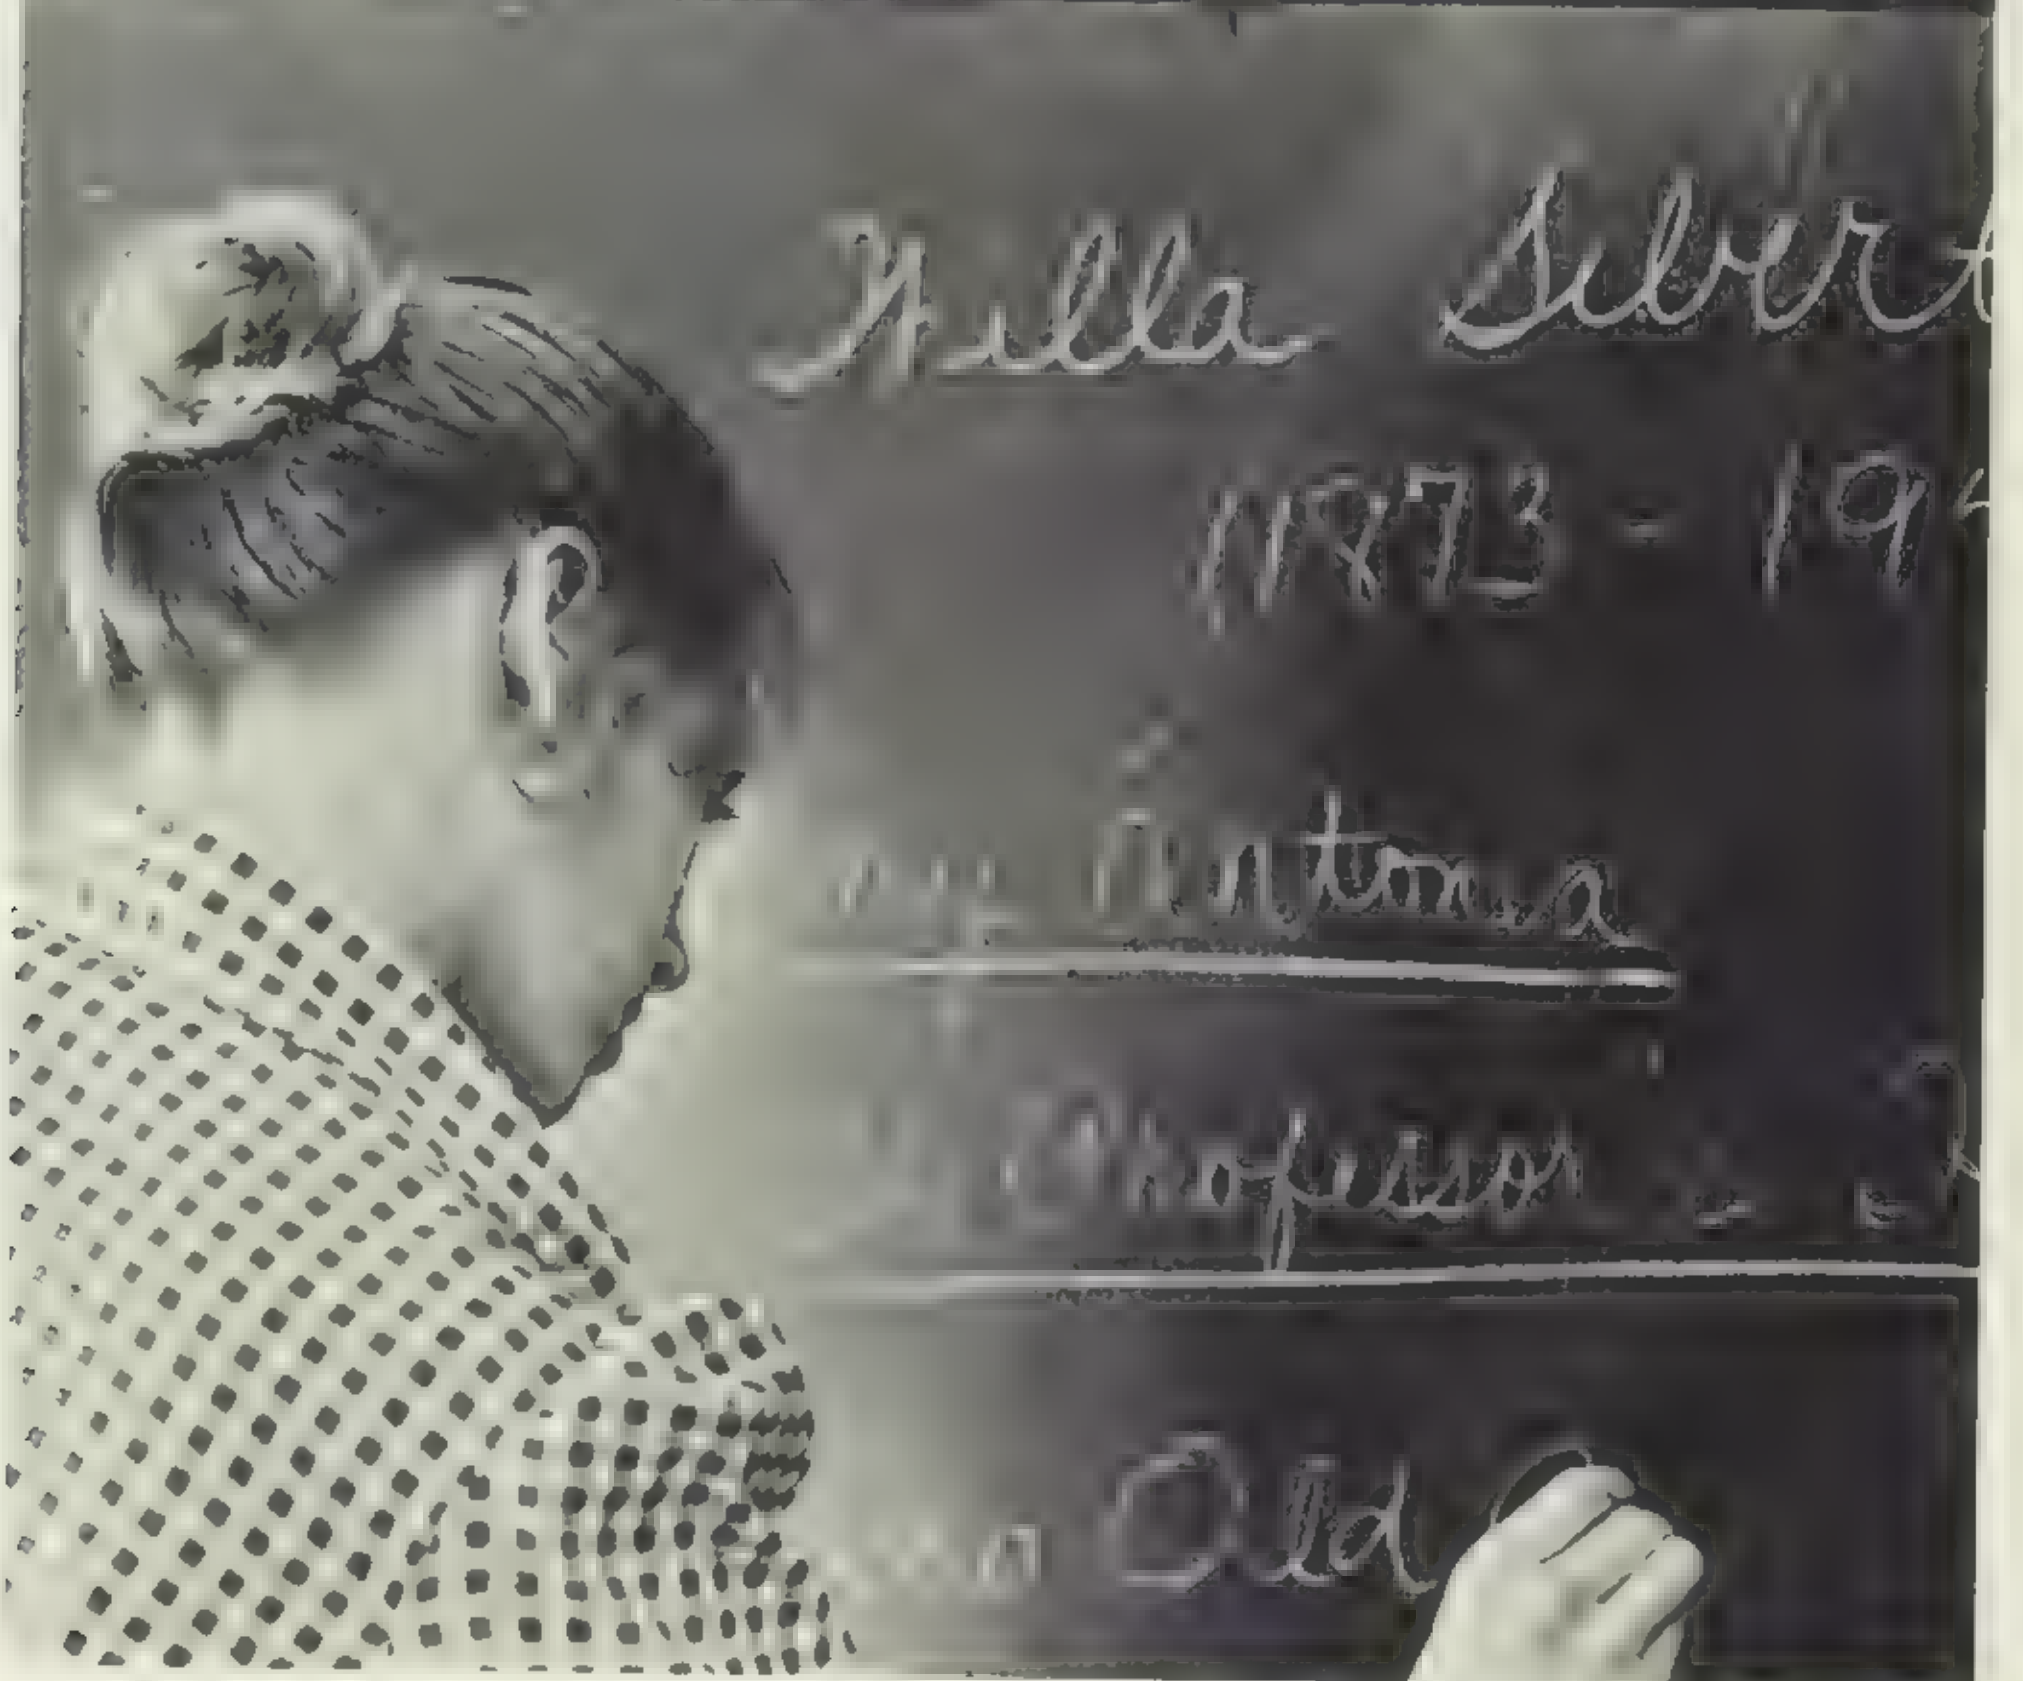 Willa Sibert
1873 - 19
my Antonia
Professor
Old